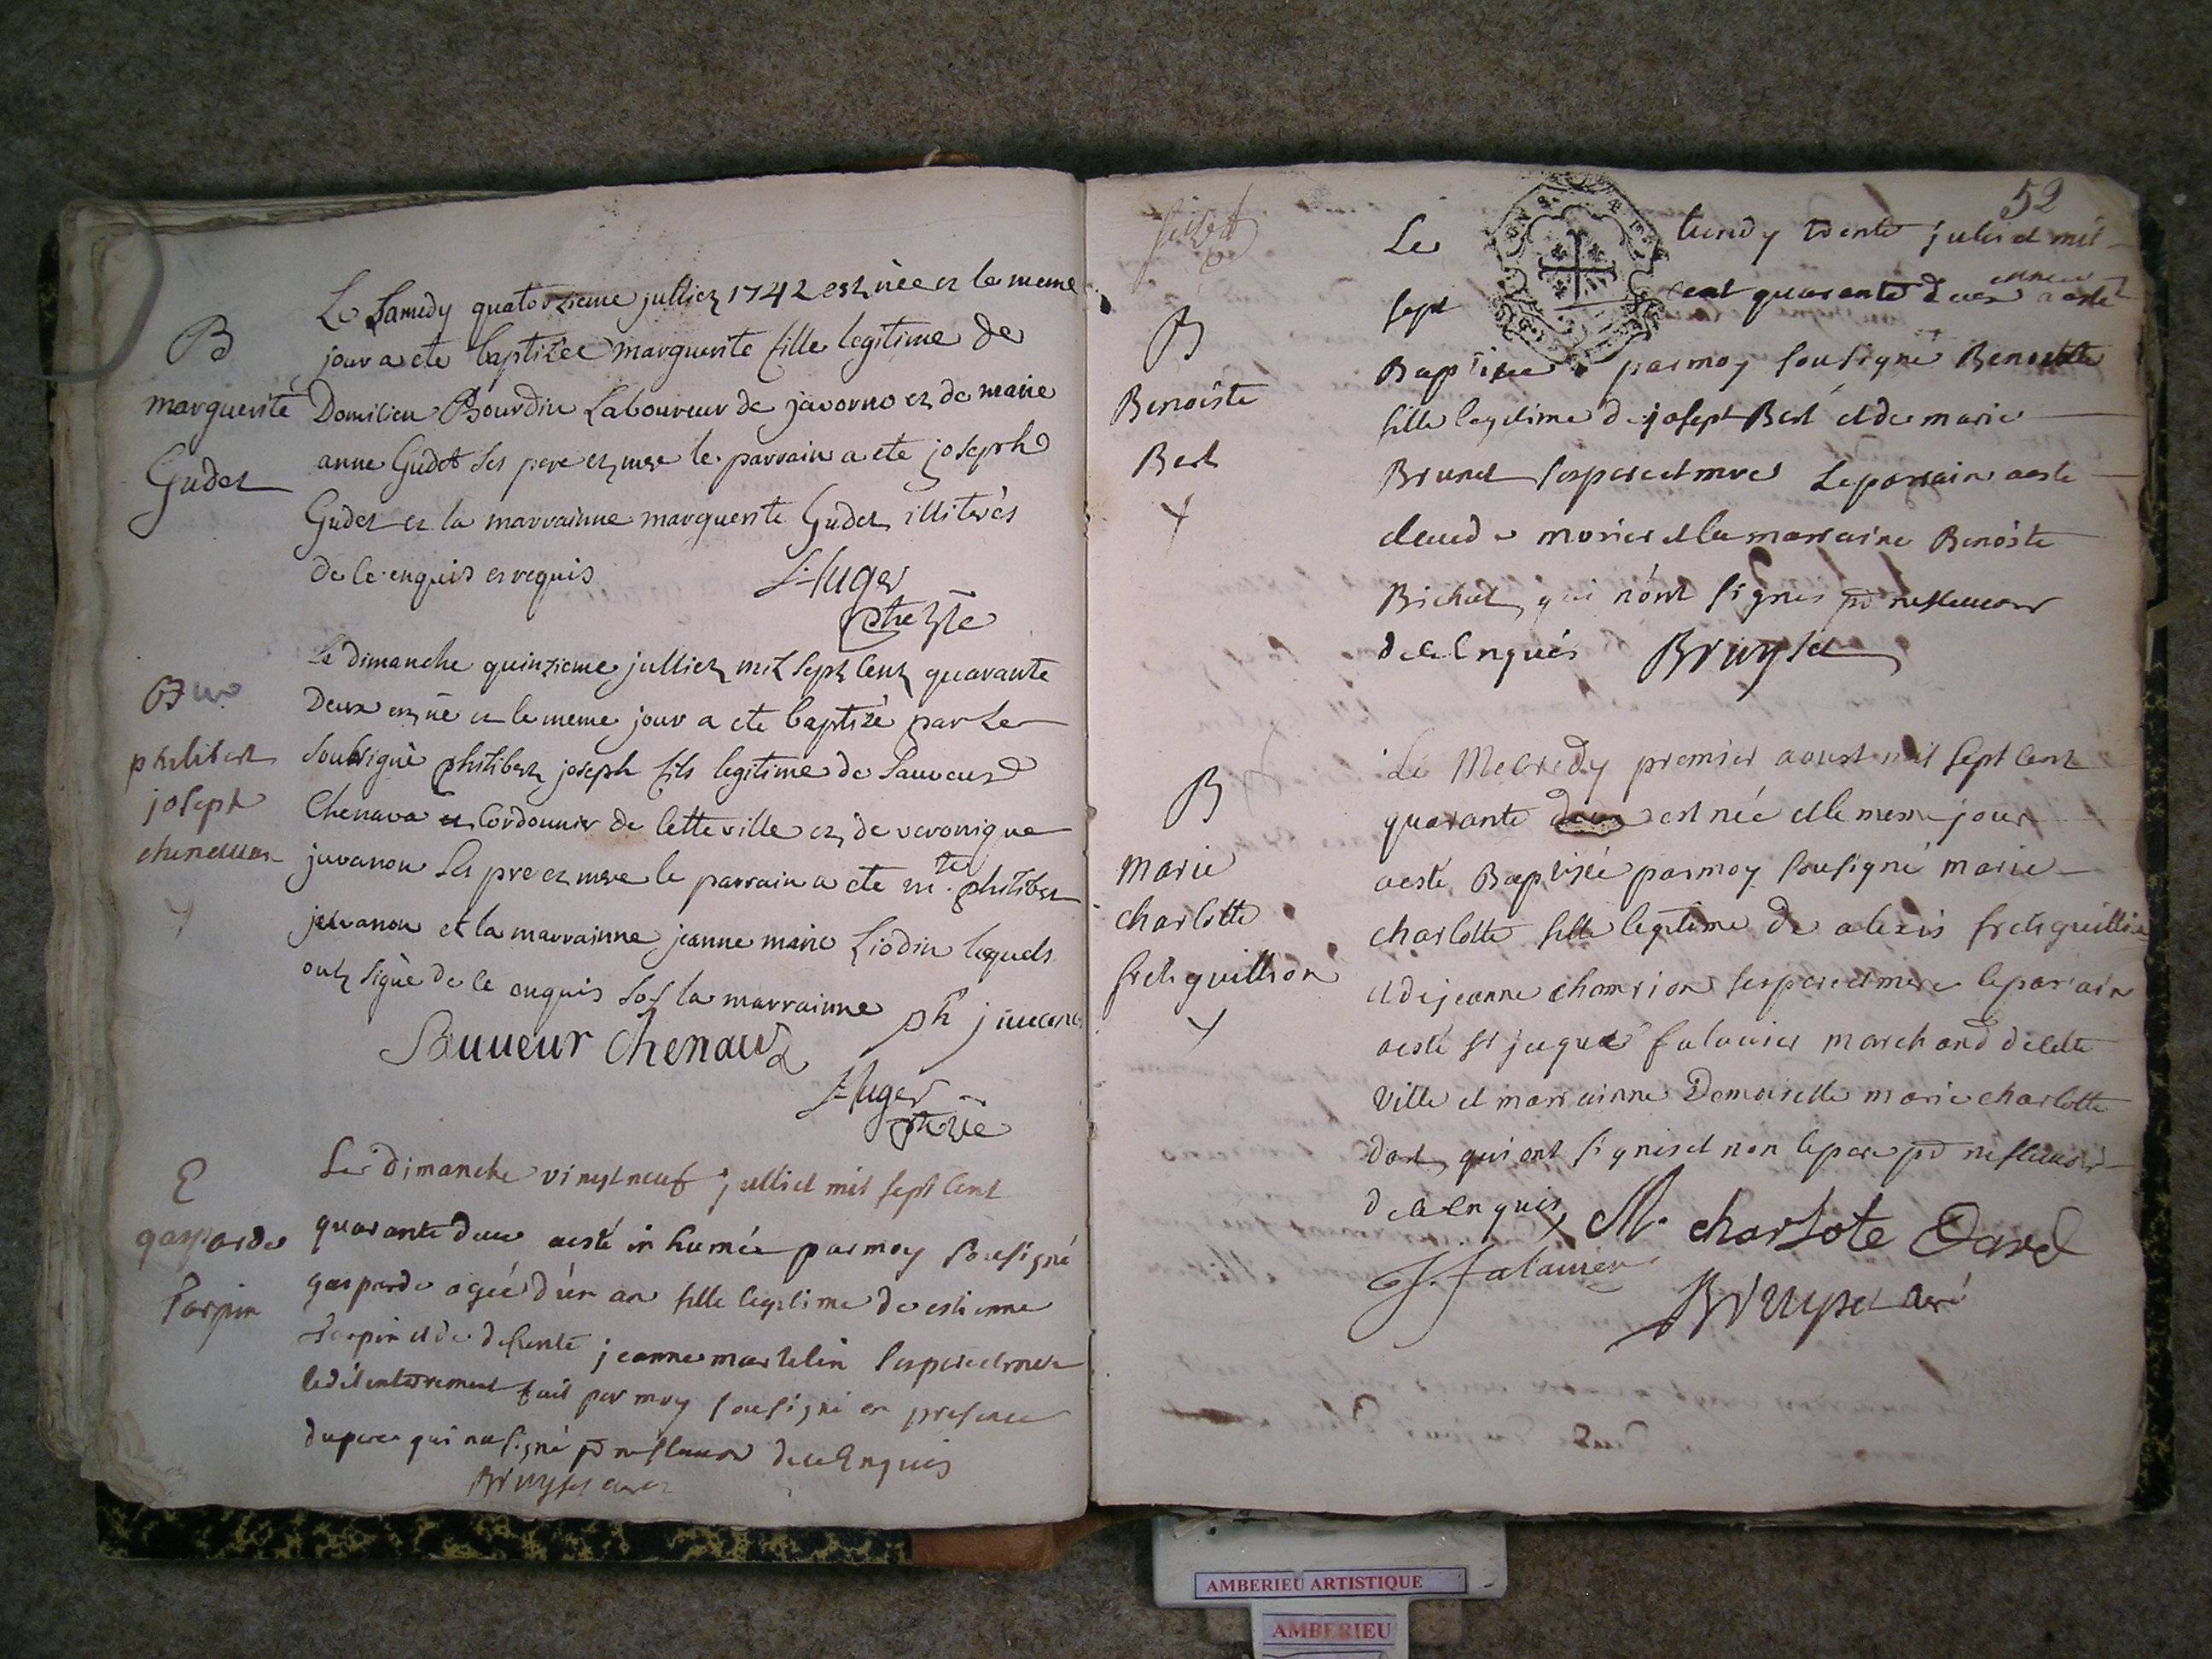 B
marguerite
Gudet
Le Samedy quatorzieme julliet 1742 est née et le meme
jour a ete baptizée marguerite fille legitime de
Domitien Bourdin Laboureur de javorno et de marie
anne Gudet ses pere et mere le parrain a ete joseph
Gudet et la marrainne marguerite Gudet illiterés
de ce enquis et requis
Huger
ptre vre
B
philibert
joseph
chenavas
Le dimanche quinzieme julliet mil sept cent quarante
Deux est né et le meme jour a ete baptizé par Le
soubsigné philibert joseph fils legitime de Sauveur
Chenava Cordonnier de cette ville et de veronique
juvanon ses pre et mere le parrain a ete mtre philibert
juvanon et la marrainne jeanne marie Liodin lequels
ont signé de ce enquis sof la marrainne ph juvanon
Sauveur Chenava
Huger
ptre vre
E
gasparde
Tarpin
Le dimanche vingt neuf julliet mil sept cent
quarante deux aesté inhumée par moy sousigné
gasparde agée d'un an fille legitime de estienne
Tarpin et de defunte jeanne martelin ses pere et mere
ledit enterrement fait par moy sousigné en presence
du pere qui na signé pr ne scavoir de ce Enquis
Bruyset curé
52
B
Benoiste
Bert
Le lundy trente juliet mil
sept cent quarante deux aesté
Baptisée par moy sousigné Benoitte
fille legitime de josept Bert et de marie
Brunet ses pere et mere Le parrain aesté
claude morier et la marraine Benoiste
Bichat qui n'ont signés pr ne scavoir
de ce Enquis Bruyset
B
marie
charlotte
fretiguillion
Le Mecredy premier aoust mil sept cent
quarante deux est née et le mesme jour
aesté Baptisée par moy sousigné marie
charlotte fille legitime de alexis fretiguillion
et de jeanne chamrion ses pere et mere le parrain
aesté sr jaque falavier marchand de cette
ville et marrainne Demoiselle marie charlotte
qui ont signes et non le pere pr ne scavoir
de ce Enquis M. charlote
J. falavier
Bruyset curé
AMBERIEU ARTISTIQUE
AMBERIEU